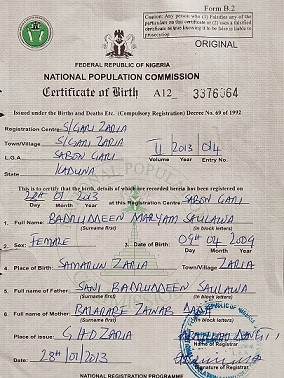 Form B.2
Caution: Any person who (1) Falsifies any of the particulars on this certificate or (2) uses a falsified certificate as true knowing it to be false is liable to prosecution
ORIGINAL
FEDERAL REPUBLIC OF NIGERIA
NATIONAL POPULATION COMMISSION
Certificate of Birth A12
Issued under the Births and Deaths Etc. (Compulsory Registration) Decree No. 69 of 1992
Registration Centre: S/GARI ZARIA
Town/Village S/GARI ZARIA
L.G.A SABON GARI 2013 014
Volume Year Entry No.
State KADUNA
This is to certify that the birth, details of which are recorded herein has been registered on
28th 01 2013 at this Registration Centre SABON GARI
Day Month Year
1. Full Name: BADRUDDEEN MARYAM SAULAWA
(Surname first) (in block letters)
2. Sex: FEMALE 3. Date of Birth: 09th 04 2009
Day Month Year
4. Place of Birth: SAMARUN ZARIA Town/Village ZARIA
5. Full Name of Father: SANI BADRUDDEEN SAULAWA
(Surname first) (in block letters)
6. Full Name of Mother: ZAINAB
(Surname first) (in block letters)
Place of issue: ZARIA
Name of Registrar
Date: 28th/01/2013
Signature of Registrar
NATIONAL REGISTRATION PROGRAMME